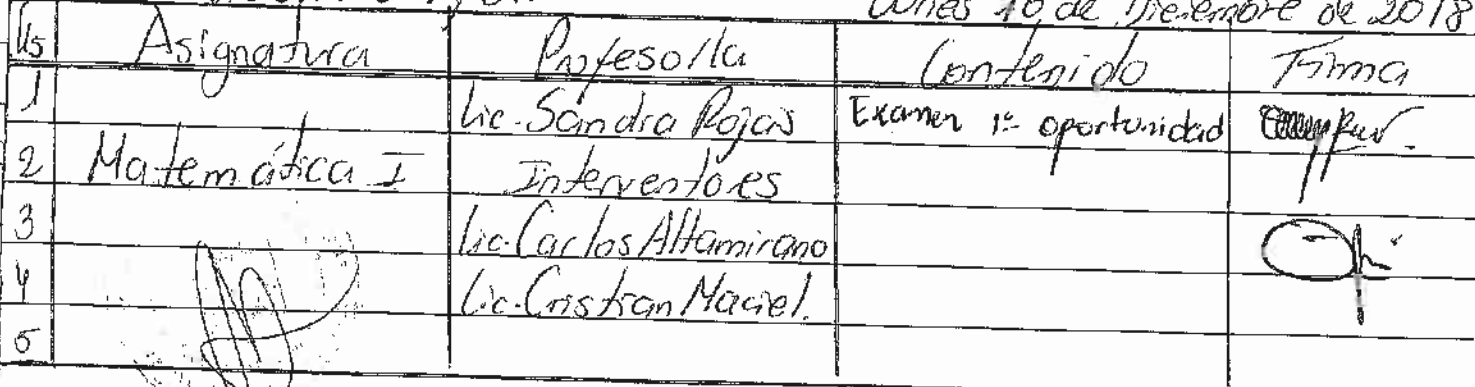 Lunes 10 de Diciembre de 2018
Hs Asignatura Profesor/la Contenido Firma
1 Lic. Sandra Rojas Examen 1ª oportunidad
2 Matemática I Interventores
3 Lic. Carlos Altamirano
4 Lic. Cristian Maciel.
5